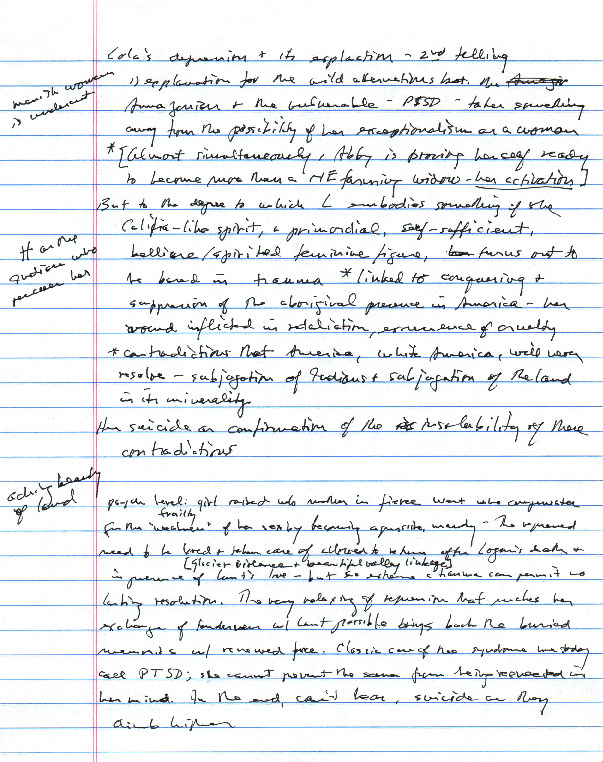 Lola's depression + its explanation - 2nd telling
is explanation for the wild alternations bet. the
Amazonian + the vulnerable - PTSD - takes something
man in woman
is
away from the possibility of her exceptionalism as a woman
* [Almost simultaneously, Abby is proving herself ready
to become more than a NE farming widow - her activation]
But to the degree to which L embodies something of the
Califia-like spirit, a primordial, self-sufficient,
bellicose/spirited feminine figure, turns out to
be based in trauma * linked to conquering +
suppression of the aboriginal presence in America - her
wound inflicted in retaliation, of cruelty
* contradictions that America, white America, will never
resolve - subjugation of Indians + subjugation of the land
in its minerality
Her suicide as confirmation of the insolubility of these
contradictions
aching beauty
of land
psych level: girl raised w/o mother in fierce want who compensates
frailty
for the "weakness" of her sex by becoming aggressive, manly - The repressed
need to be loved & taken care of allowed to return after Logan's death +
[Glacier violence + beautiful valley linkage]
in presence of love - but so extreme a trauma can permit no
lasting resolution. The very relaxing of repression that makes her
exchange of tenderness w/ possible brings back the buried
memories w/ renewed force. Classic case of the syndrome we today
call PTSD; she cannot prevent the scenes from being repeated in
her mind. In the end, can't bear, suicide as they
climb higher